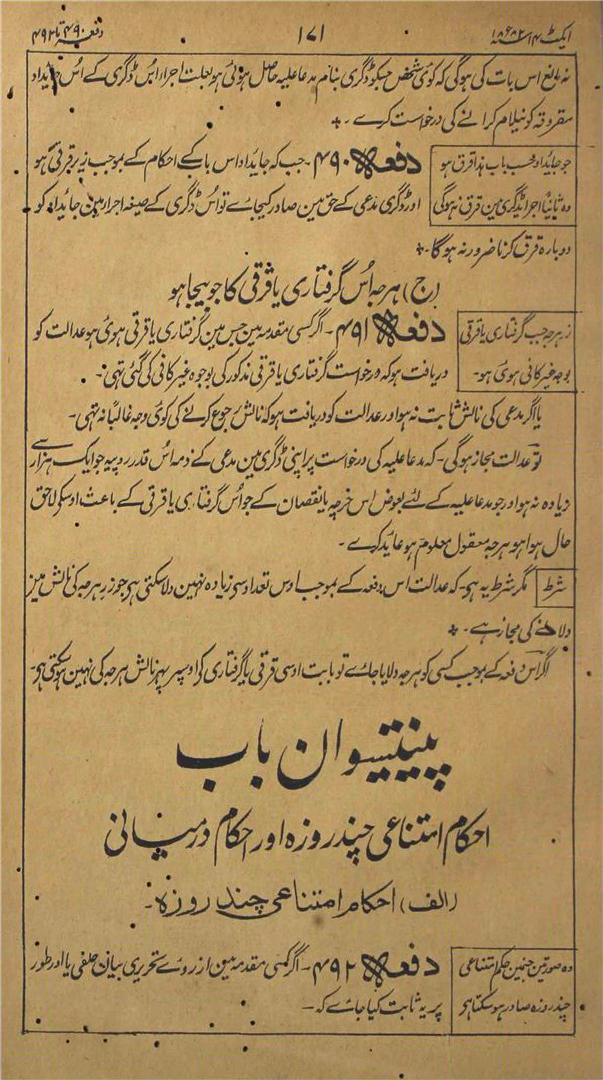 ایکٹ ۱۴ سنہ ۱۸۸۲ء ۱۷۱ دفعہ ۴۹۰ تا ۴۹۲
نہ مانع اس بات کی ہوگی کہ کوئی شخص جسکو ڈگری بنام مدعاعلیہ حاصل ہوئی ہو بعلت اجراء اس ڈگری کے اُس جایداد
مقروقہ کو نیلام کرانے کی درخواست کرے۔
جو جائداد حسب باب ہذا قرق ہو
وہ ثانیاً اجراء ڈگری مین قرق نہوگی
دفعہ ۴۹۰۔ جب کہ جایداد اس باب کے احکام کے بموجب زیر قرقی ہو
اور ڈگری مدعی کے حق مین صادر کیجاے تو اُس ڈگری کے صیغہ اجرا مین جائداد کو
دوبارہ قرق کرنا ضرور نہ ہوگا۔
(ج) ہرجہ اُس گرفتاری یا قرقی کا جو بیجا ہو
زر ہرجہ جب گرفتاری یا قرقی
بوجہ غیر کافی ہوئی ہو۔
دفعہ ۴۹۱۔ اگر کسی مقدمہ مین جس مین گرفتاری یا قرقی ہوئی ہو عدالت کو
دریافت ہو کہ درخواست گرفتاری یا قرقی مذکور کی بوجوہ غیر کافی کی گئی تہی۔
یا اگر مدعی کی نالش ثابت نہ ہو اور عدالت کو دریافت ہو کہ نالش رجوع کرنے کی کوئی وجہ غالباً نہ تہی۔
تو عدالت مجاز ہوگی۔ کہ مدعاعلیہ کی درخواست پر اپنی ڈگری مین مدعی کے ذمہ اُس قدر روپیہ جو ایک ہزار سے
زیادہ نہ ہو اور جو مدعاعلیہ کے لئے بعوض اس خرچہ یا نقصان کے جو اُس گرفتاری یا قرقی کے باعث اوسکو لاحق
حال ہوا ہو ہرجہ معقول معلوم ہو عاید کرے۔
شرط مگر شرط یہ ہی۔ کہ عدالت اس دفعہ کے بموجب اوس تعداد سی زیادہ نہین دلا سکتی ہی جو زر ہرجہ کی نالش مین
دلانے کی مجاز ہے۔
اگر اس دفعہ کے بموجب کسی کو ہرجہ دلایا جاے تو بابت اوسی قرقی یا گرفتاری کی اوسپر پہر نالش ہرجہ کی نہین ہوسکتی ہی۔
پینتیسوان باب
احکام امتناعی چند روزہ اور احکام درمیانی
(الف) احکام امتناعی چند روزہ۔
وہ صورتین جنمین حکم امتناعی
چند روزہ صادر ہوسکتا ہی
دفعہ ۴۹۲۔ اگر کسی مقدمہ مین ازروے تحریری بیان حلفی یا اور طور
پر یہ ثابت کیا جاے کہ۔